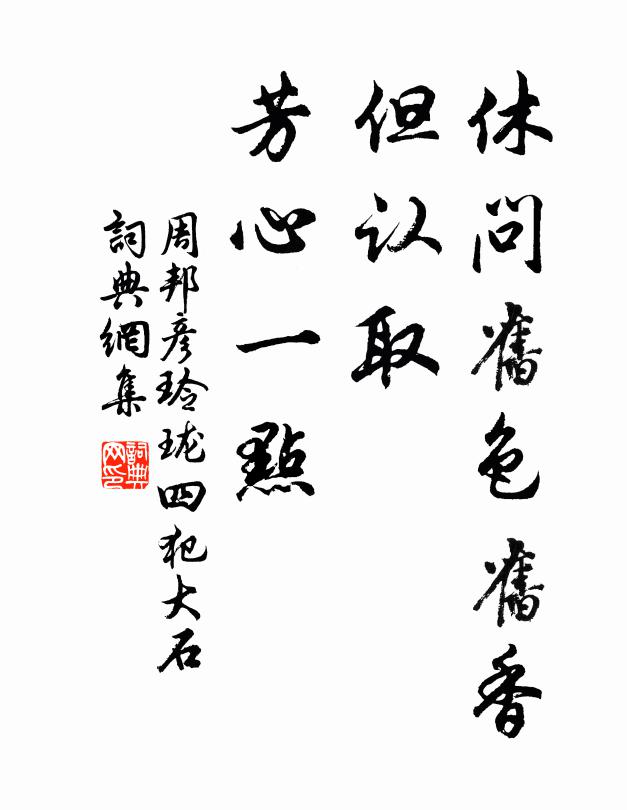 休問舊色舊香
但认取
芳心一點
周邦彦玲珑四犯大石
詞典網集
詞典网印